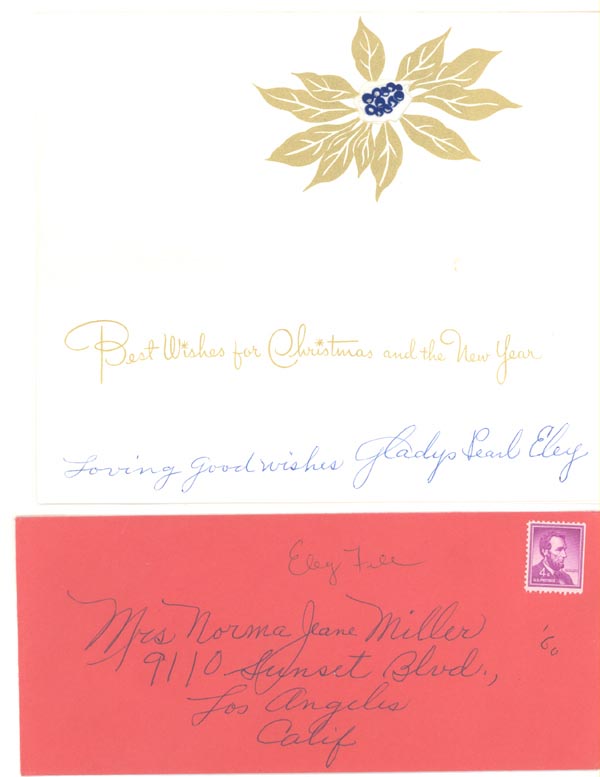 Best Wishes for Christmas and the New Year
Loving Good wishes Gladys Pearl Eley
Eley File
4¢
U.S. POSTAGE
Mrs Norma Jeane Miller
9110 Sunset Blvd.,
Los Angeles
Calif